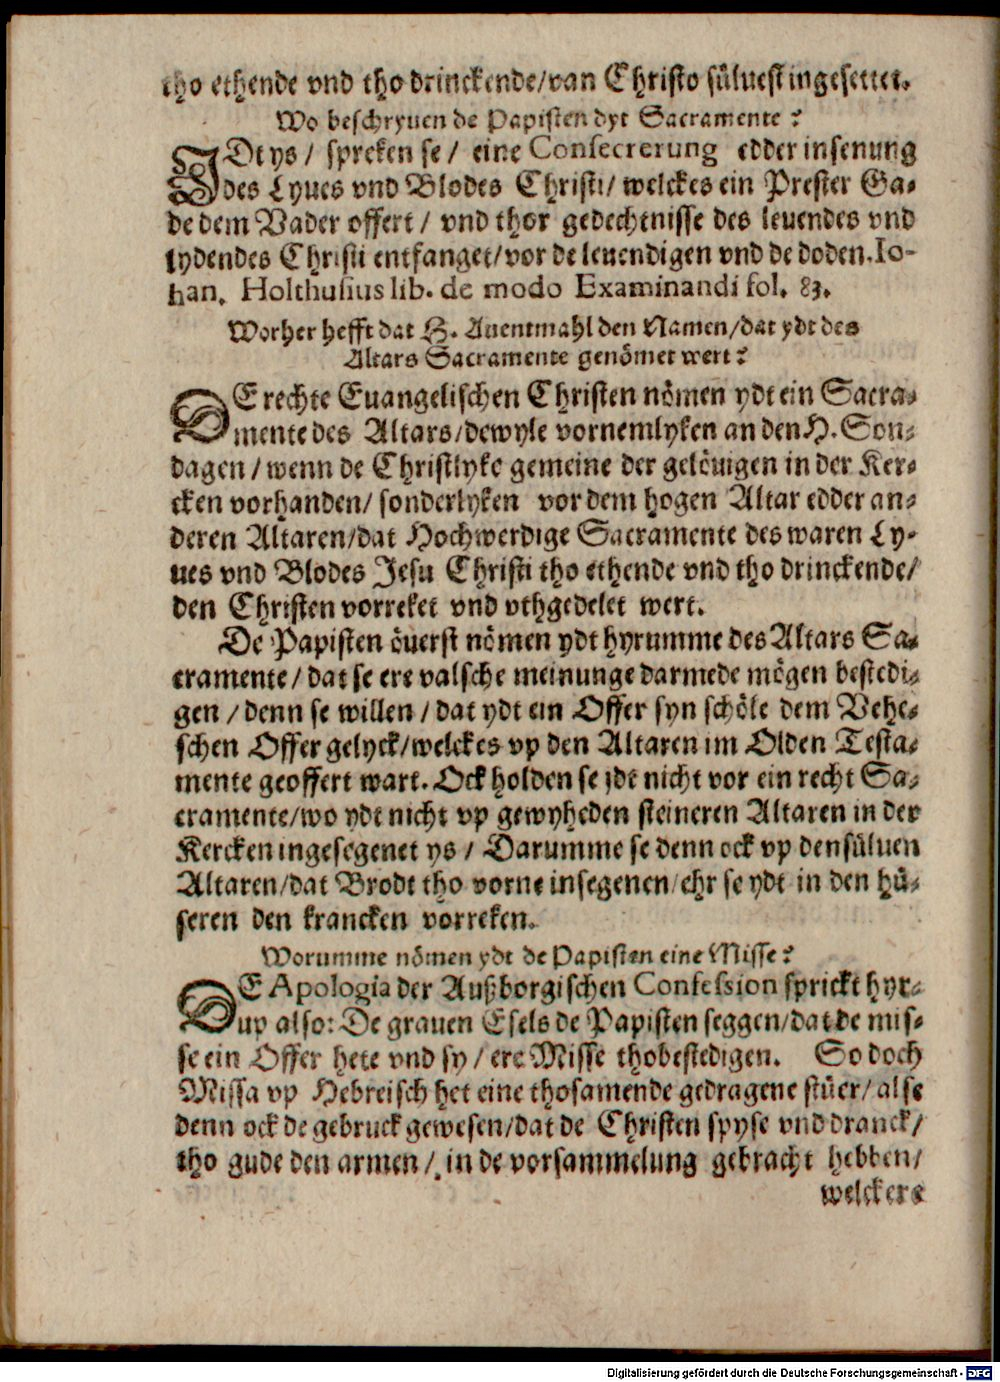 tho ethende vnd tho drinckende/van Christo süluest ingesettet.
Wo beschryuen de Papisten dyt Sacramente?
IDt ys / spreken se / eine Consecrerung edder insenung
des Lyues vnd Blodes Christi/ welckes ein Prester Ga-
de dem Vader offert / vnd thor gedechtnisse des leuendes vnd
lydendes Christi entfanget/vor de leuendigen vnd de doden. Io-
han. Holthusius lib. de modo Examinandi fol. 83.
Worher hefft dat H. Auentmahl den Namen/dat ydt des
Altars Sacramente genömet wert?
DE rechte Euangelischen Christen nömen ydt ein Sacra-
mente des Altars/dewyle vornemlyken an den H. Son-
dagen / wenn de Christlyke gemeine der gelöuigen in der Ker-
cken vorhanden/ sonderlyken vor dem hogen Altar edder an-
deren Altaren/dat Hochwerdige Sacramente des waren Ly-
ues vnd Blodes Jesu Christi tho ethende vnd tho drinckende/
den Christen vorreket vnd vthgedelet wert.
De Papisten öuerst nömen ydt hyrumme des Altars Sa-
cramente / dat se ere valsche meinunge darmede mögen bestedi-
gen / denn se willen / dat ydt ein Offer syn schöle dem Vehe-
schen Offer gelyck/welckes vp den Altaren im Olden Testa-
mente geoffert wart. Ock holden se ydt nicht vor ein recht Sa-
cramente/wo ydt nicht vp gewyheden steineren Altaren in der
Kercken ingesegenet ys / Darumme se denn ock vp den süluen
Altaren/dat Brodt tho vorne insegenen/ehr se ydt in den hü-
seren den krancken vorreken.
Worumme nömen ydt de Papisten eine Misse?
DE Apologia der Außborgischen Confession sprickt hyr-
up also: De grauen Esels de Papisten seggen/dat de mis-
se ein Offer hete vnd sy / ere Misse thobestedigen. So doch
Missa vp Hebreisch het eine thosamende gedragene stüer/ alse
denn ock de gebruck gewesen/dat de Christen spyse vnd dranck/
tho gude den armen / in de vorsammelung gebracht hebben/
welckere
Digitalisierung gefördert durch die Deutsche Forschungsgemeinschaft - DFG